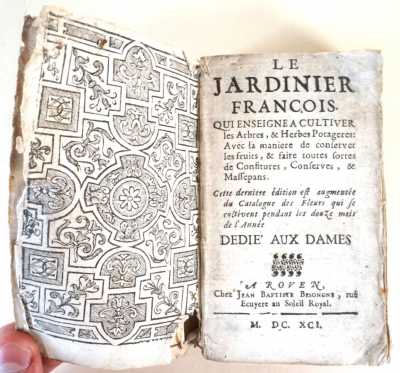 LE
JARDINIER
FRANÇOIS.
QUI ENSEIGNE A CULTIVER
les Arbres, & Herbes Potageres:
Avec la maniere de conserver
les fruits, & faire toutes sortes
de Confitures, Conserves, &
Massepans.
Cette derniere édition est augmentée
du Catalogue des Fleurs qui se
cultivent pendant les douze mois
de l'Année
DEDIE' AUX DAMES
A ROVEN,
Chez JEAN BAPTISTE BESONGNE, ruë
Ecuyere au Soleil Royal.
M. DC. XCI.